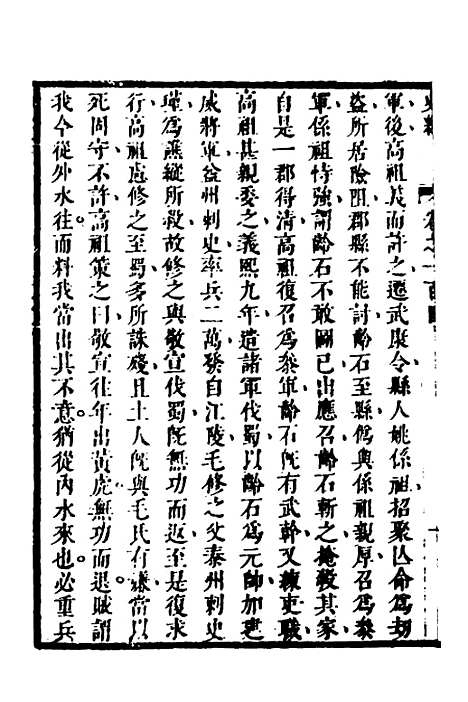 軍後高祖義而許之遷武康令縣人姚係祖招聚亾命爲劫
盜所居險阻郡縣不能討齡石至縣僞與係祖親厚召爲叅
軍係祖恃強謂齡石不敢圖己出應召齡石斬之掩殺其家
自是一郡得清高祖復召爲叅軍齡石旣有武幹又練吏職
高祖甚親委之義熙九年遣諸軍伐蜀以齡石爲元帥加建
威將軍益州刺史率兵二萬發自江陵毛修之父秦州刺史
瑾爲譙縱所殺故修之與敬宣伐蜀旣無功而返至是復求
行高祖慮修之至蜀多所誅殘且土人旣與毛氏有嫌當以
死固守不許高祖策之曰敬宣往年出黃虎無功而退賊謂
我今從外水往而料我當出其不意猶從內水來也必重兵